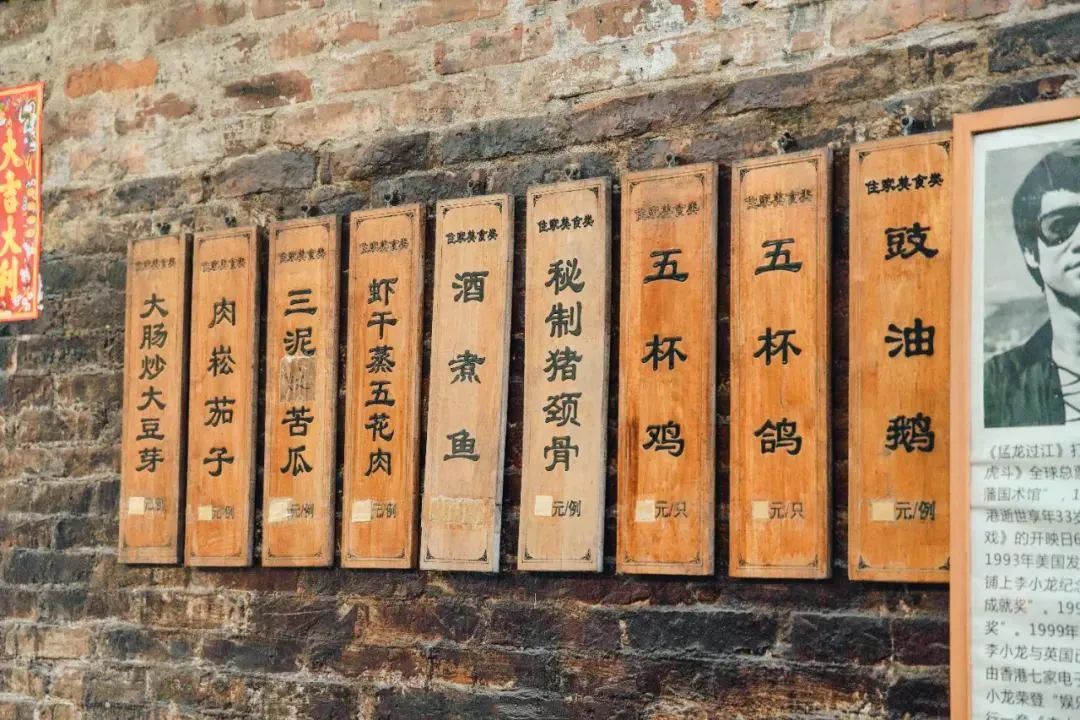 大吉大利
住家美食类
大肠炒大豆芽
元/例
住家美食类
肉崧茄子
元/例
住家美食类
三泥苦瓜
元/例
住家美食类
虾干蒸五花肉
元/例
住家美食类
酒煮鱼
住家美食类
秘制猪颈骨
元/例
住家美食类
五杯鸡
元/只
住家美食类
五杯鸽
元/只
住家美食类
豉油鹅
元/例
《猛龙过江》打
虎斗》全球总
藩国术馆"，1
港逝世享年33岁
戏》的开映日6
1993年美国发
铺上李小龙纪念
成就奖"。199
奖"。1999年
李小龙与英国
由香港七家电子
小龙荣登"娱